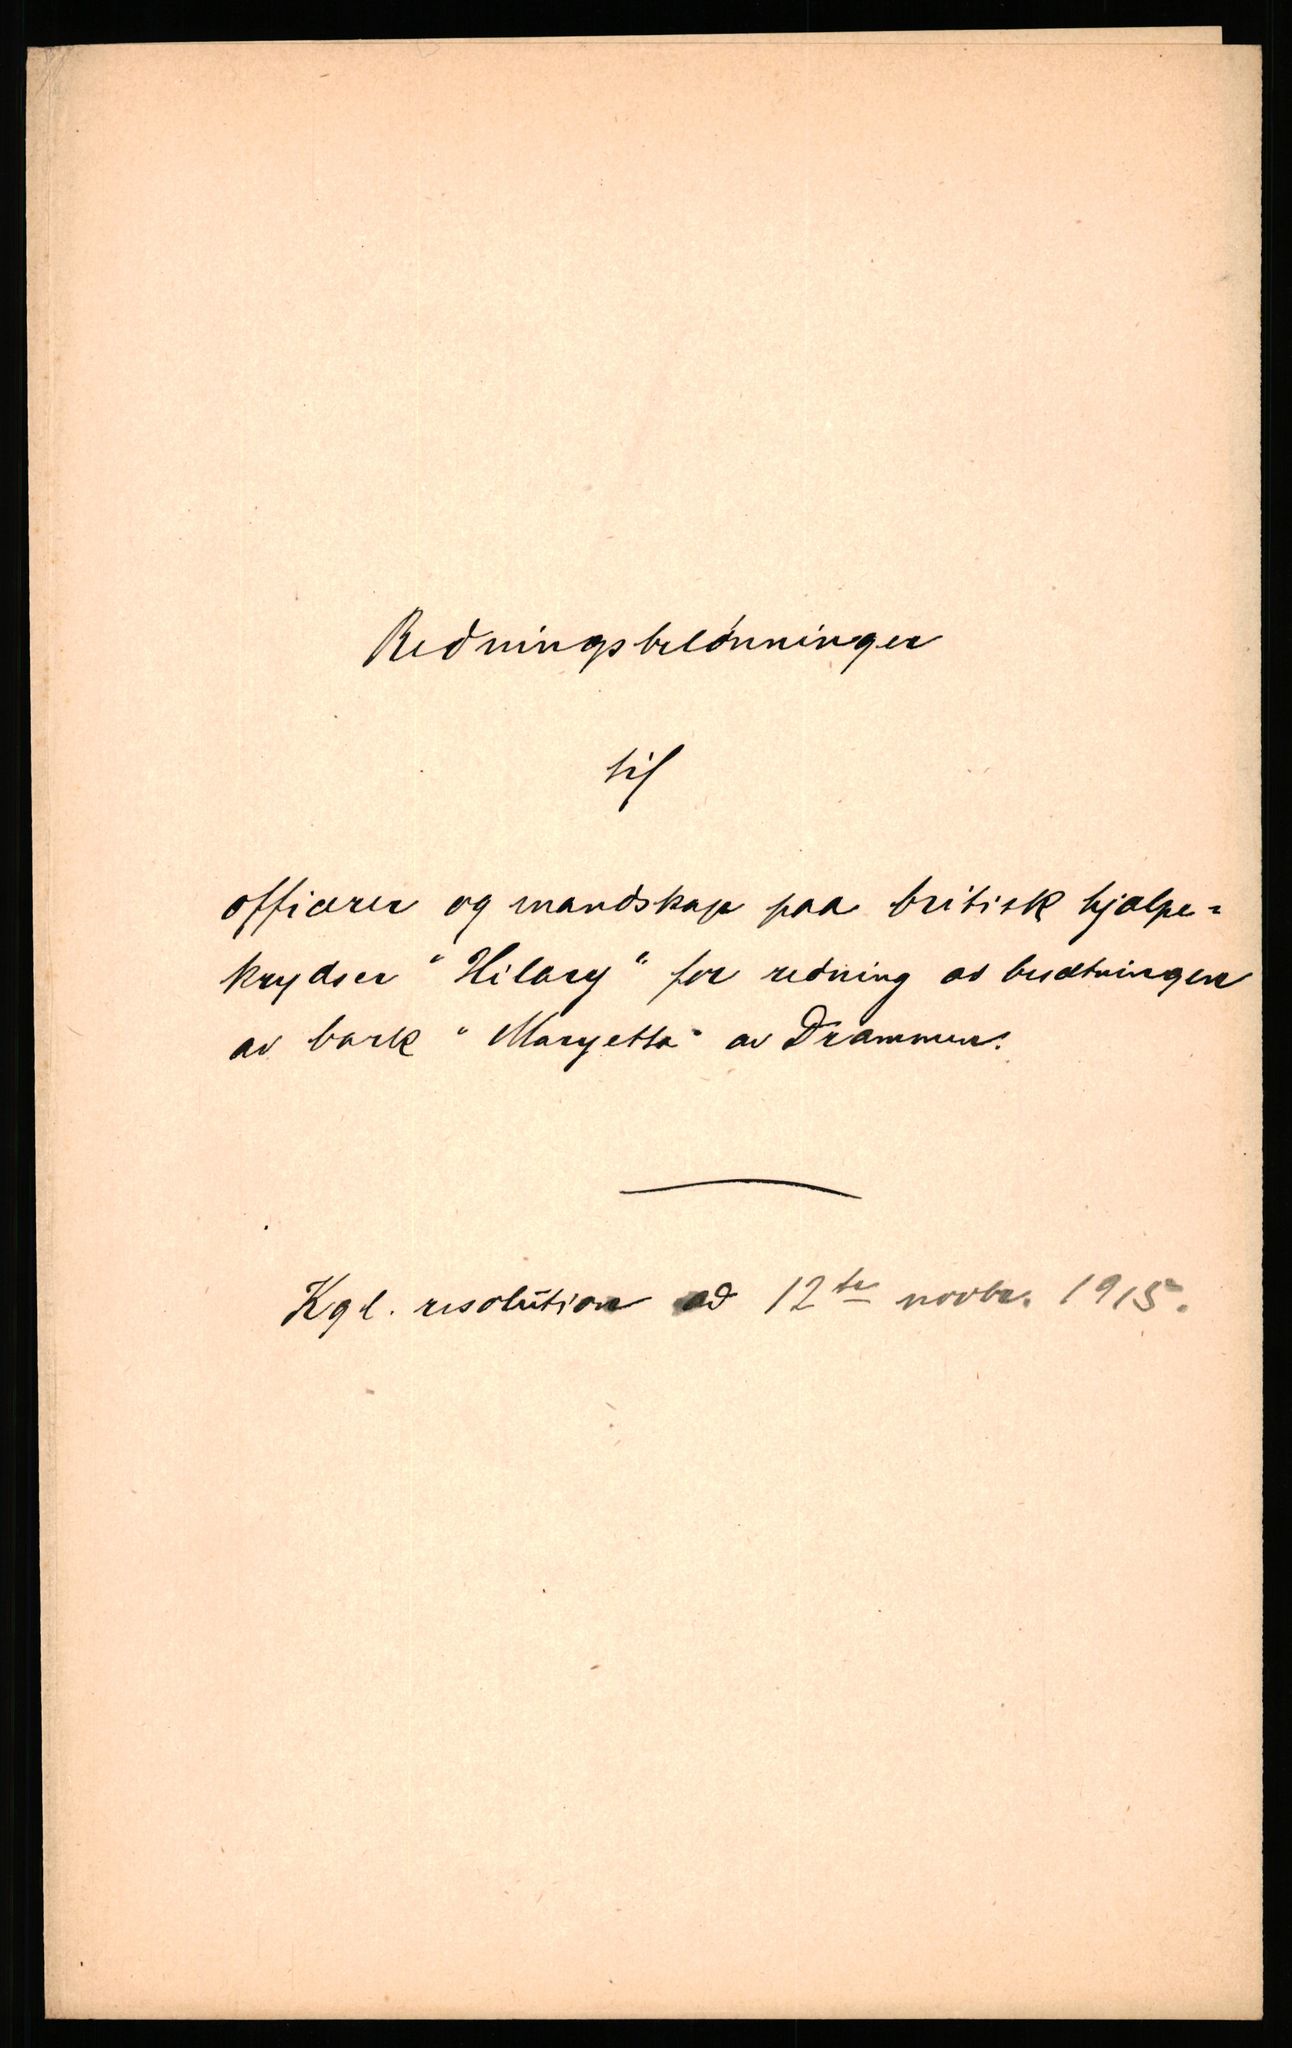 Redningsbelønninger
til
officerer og mandskap paa britisk hjælpe=
krydser "Hilary" for redning av besætningen
av bark "Maryetta" av Drammen.
Kgl. resolution av 12te novbr. 1915.